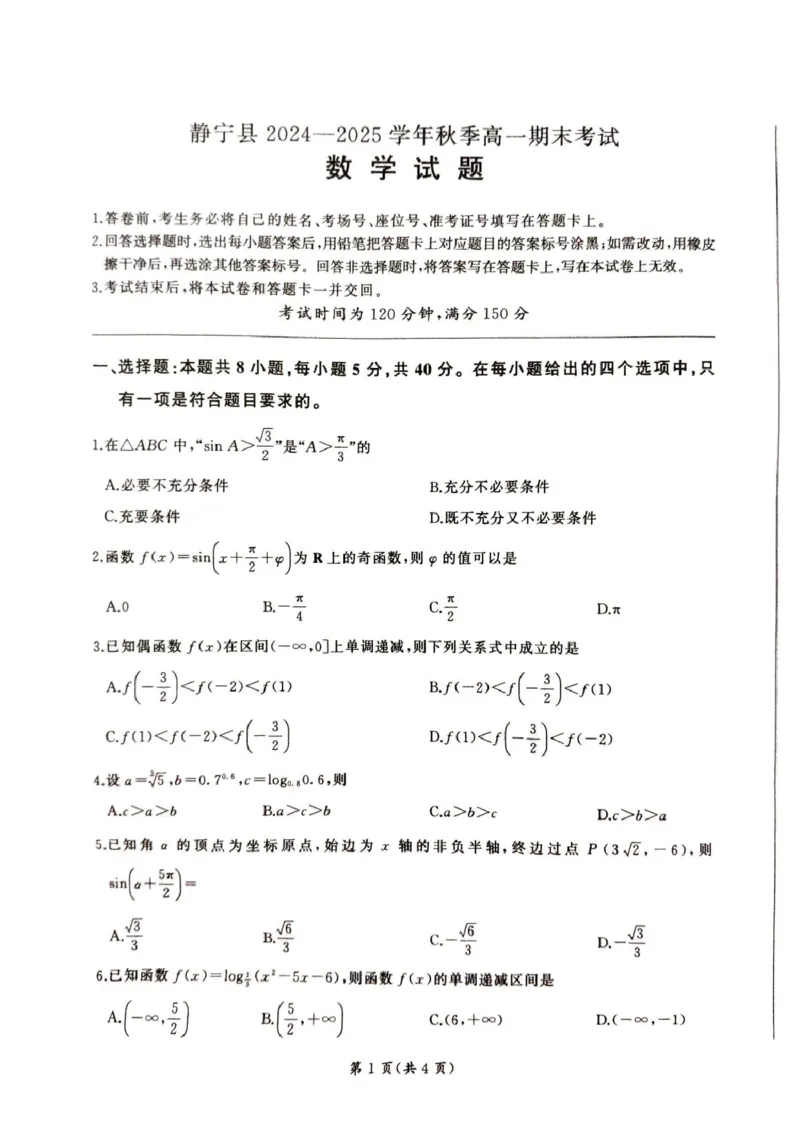 静宁县 2024—2025 学年秋季高一期末考试
数 学 试 题
1.答卷前,考生务必将自己的姓名、考场号、座位号、准考证号填写在答题卡上。
2.回答选择题时,选出每小题答案后,用铅笔把答题卡上对应题目的答案标号涂黑;如需改动,用橡皮
擦干净后,再选涂其他答案标号。回答非选择题时,将答案写在答题卡上,写在本试卷上无效。
3.考试结束后,将本试卷和答题卡一并交回。
考试时间为 120 分钟,满分 150 分
一、选择题:本题共 8 小题,每小题 5 分,共 40 分。在每小题给出的四个选项中,只
有一项是符合题目要求的。
1.在△ABC 中,“sin A>√3/2”是“A>π/3”的
A.必要不充分条件 B.充分不必要条件
C.充要条件 D.既不充分又不必要条件
2.函数 f(x)=sin(x+π/2+φ)为 R 上的奇函数,则 φ 的值可以是
A.0 B.-π/4 C.π/2 D.π
3.已知偶函数 f(x)在区间(-∞,0]上单调递减,则下列关系式中成立的是
A.f(-3/2)<f(-2)<f(1) B.f(-2)<f(-3/2)<f(1)
C.f(1)<f(-2)<f(-3/2) D.f(1)<f(-3/2)<f(-2)
4.设 a=∛5,b=0.7^0.6,c=log₀.₈0.6,则
A.c>a>b B.a>c>b C.a>b>c D.c>b>a
5.已知角 α 的顶点为坐标原点,始边为 x 轴的非负半轴,终边过点 P(3√2,-6),则
sin(α+5π/2)=
A.√3/3 B.√6/3 C.-√6/3 D.-√3/3
6.已知函数 f(x)=log_{1/3}(x²-5x-6),则函数 f(x)的单调递减区间是
A.(-∞,5/2) B.(5/2,+∞) C.(6,+∞) D.(-∞,-1)
第 1 页(共 4 页)